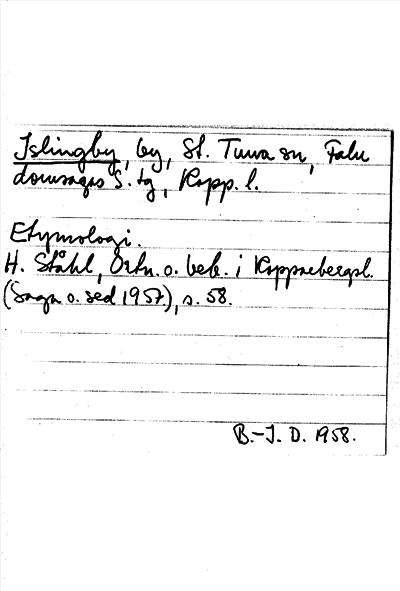 Islingby, by, St. Tuna sn, Falu
domsagas S. tg, Kopp. l.
Etymologi.
H. Ståhl, Ortn. o. beb. i Kopparbergsl.
(Saga o. sed 1957), s. 58.
B.-J. D. 1958.